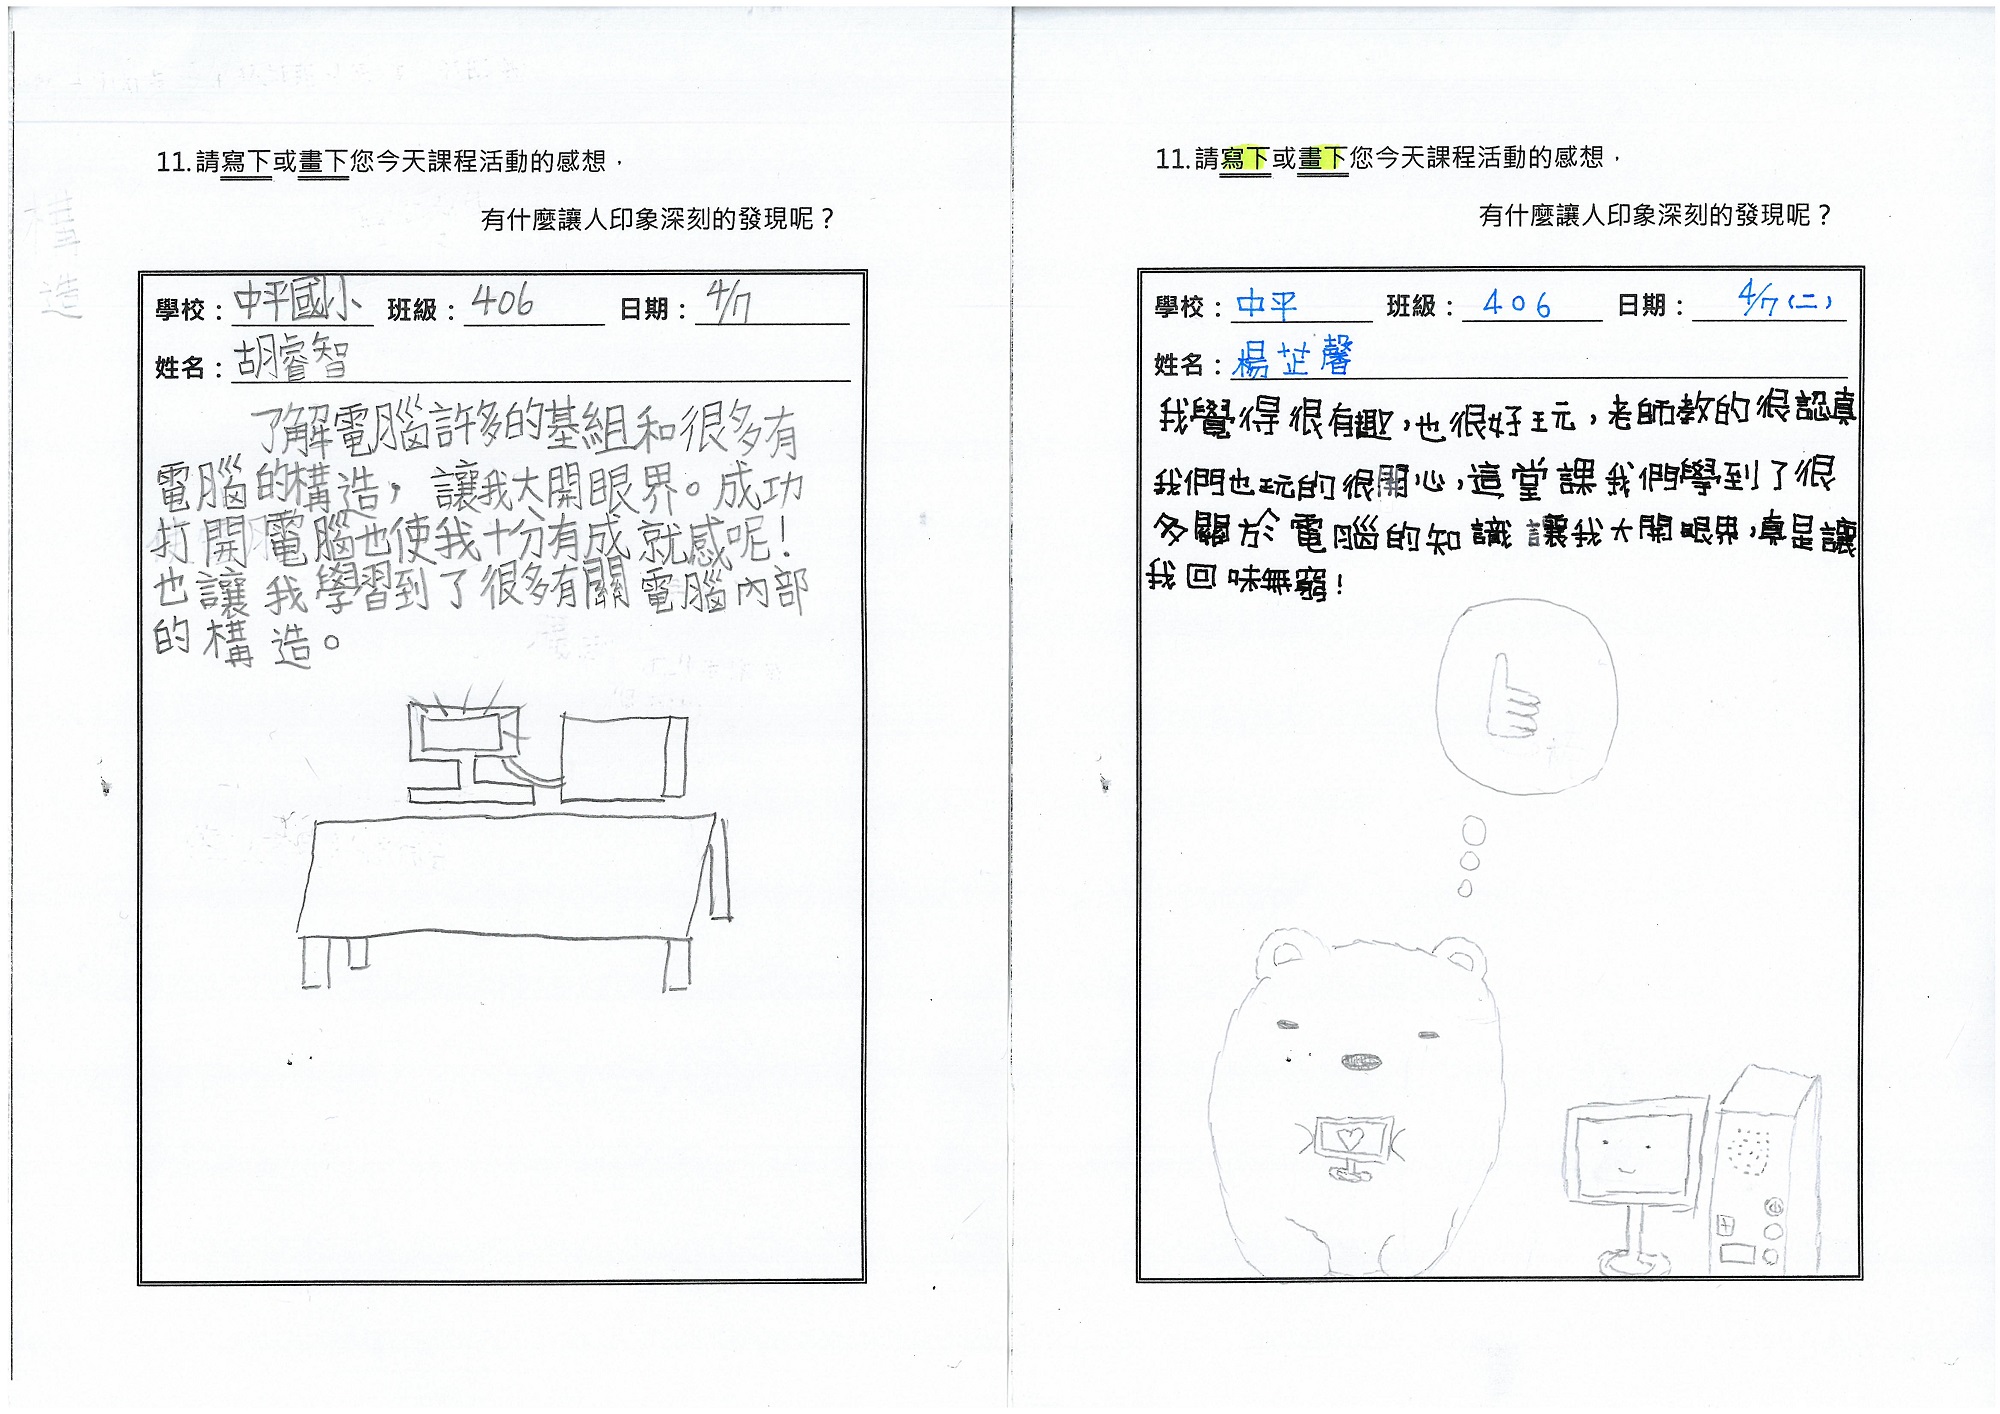 11.請寫下或畫下您今天課程活動的感想，
有什麼讓人印象深刻的發現呢？
學校：中平國小 班級：406 日期：4/7
姓名：胡睿智
了解電腦許多的基組和很多有
電腦的構造，讓我大開眼界。成功
打開電腦也使我十分有成就感呢！
也讓我學習到了很多有關電腦內部
的構造。
11.請寫下或畫下您今天課程活動的感想，
有什麼讓人印象深刻的發現呢？
學校：中平 班級：406 日期：4/7(二)
姓名：楊芷馨
我覺得很有趣，也很好玩，老師教的很認真
我們也玩的很開心，這堂課我們學到了很
多關於電腦的知識讓我大開眼界，真是讓
我回味無窮！